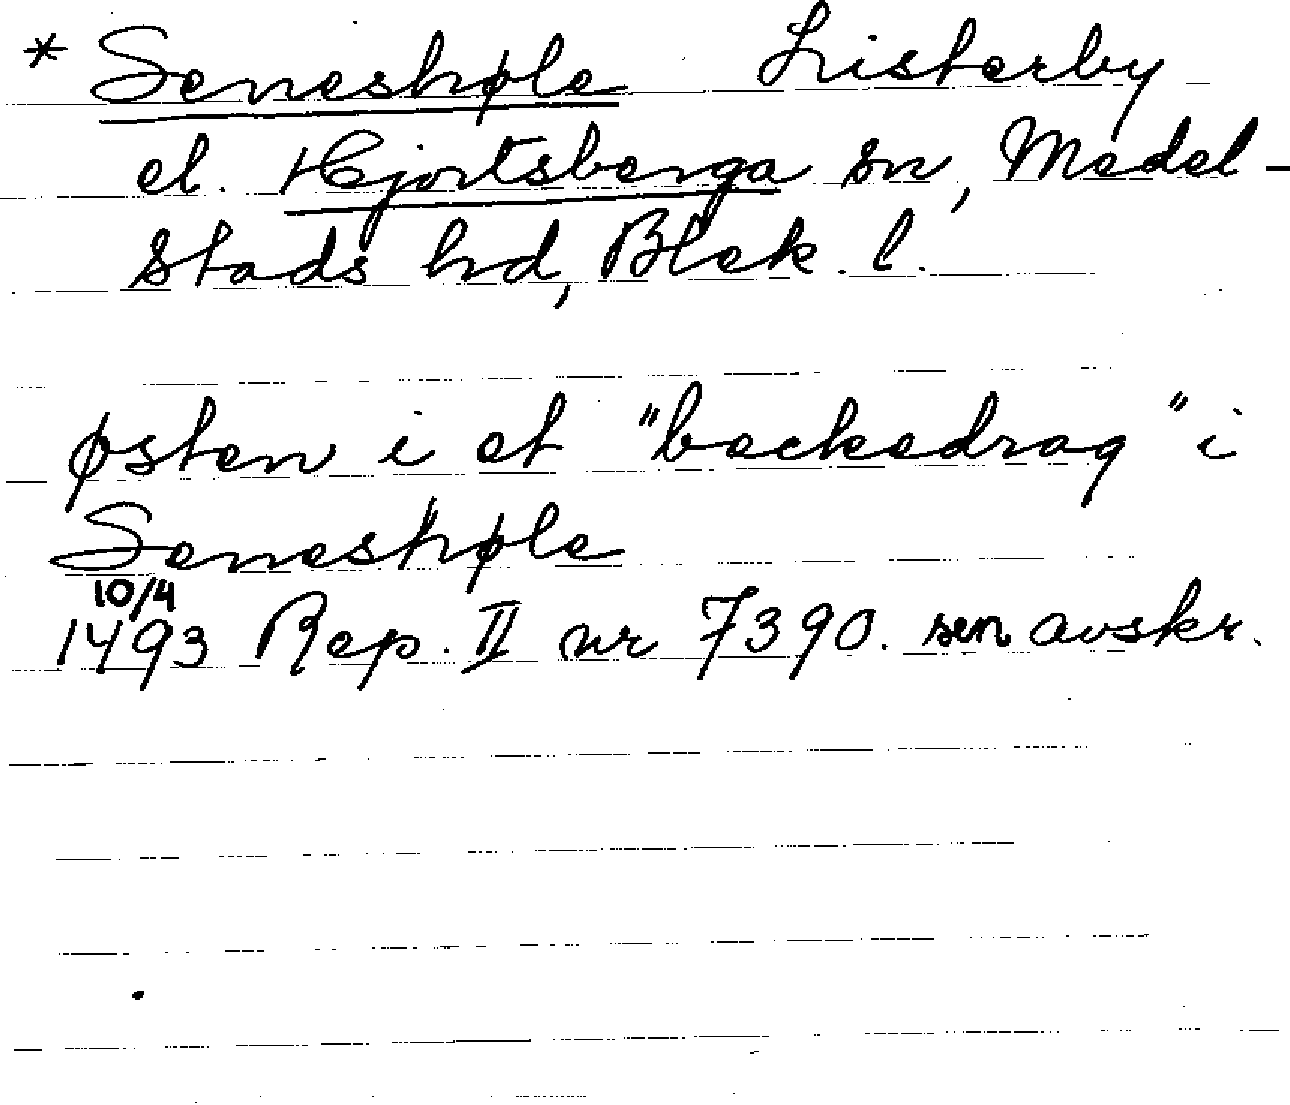 * Seneshøle Listerby
el. Hjortsberga sn, Medel-
stads hd, Blek. l.
østen i et "beckedrag" i
Seneshøle
10/4
1493 Rep. II nr 7390. sen avskr.